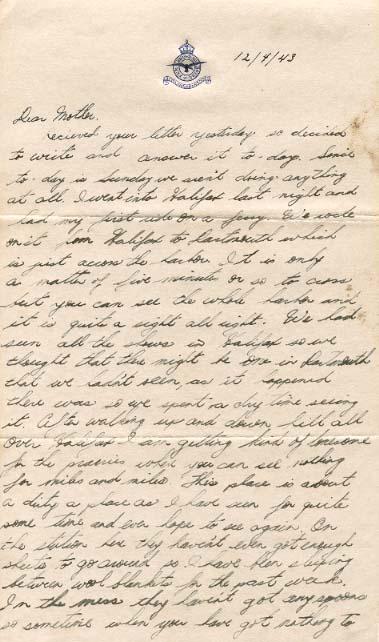 12/4/43
Dear Mother,
recieved your letter yesterday so decided
to write and answer it to-day. Since
to-day is Sunday we aren't doing anything
at all. I went into Halifax last night and
had my first ride on a ferry. We rode
on it from Halifax to Dartmouth which
is just across the harbor. It is only
a matter of five minutes or so to cross
but you can see the whole harbor and
it is quite a sight all right. We had
seen all the shows in Halifax so we
thought that there might be one in Dartmouth
that we hadn't seen, as it happened
there was so we spent a day time seeing
it. After walking up and down hill all
over Halifax I am getting kind of lonesome
for the prairies where you can see nothing
for miles and miles. This place is about
a dirty a place as I have seen for quite
some time and ever hope to see again. On
the station here they haven't even got enough
sheets to go around so I have been sleeping
between wool blankets for the past week.
In the mess they haven't got any spoons
so sometimes when you have got nothing to